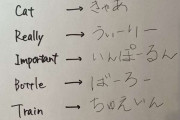 Cat → きゃあ
Really → うぃーりー
Important → いんぽーるん
Bottle → ばーろー
Train → ちゅえいん